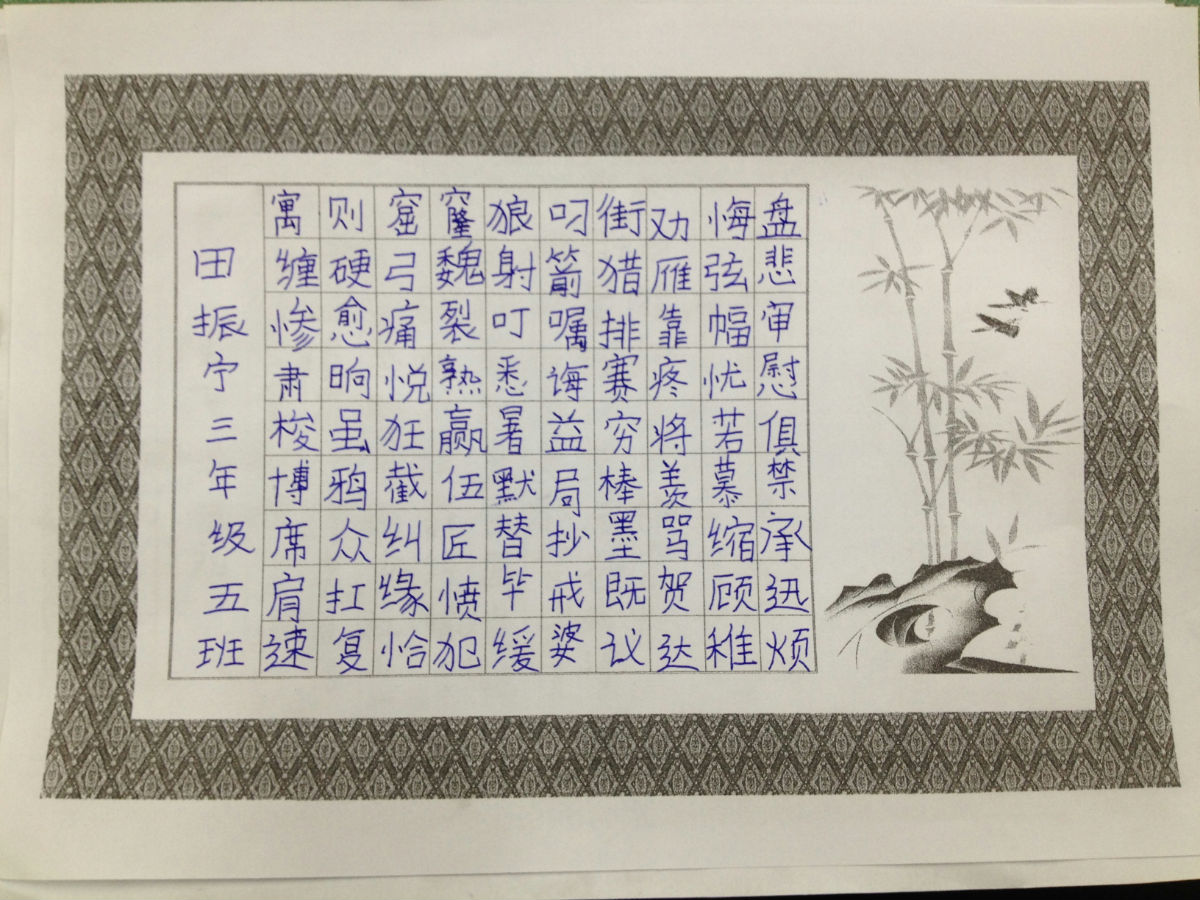 寓则窟窿狼叼街劝悔盘
缠硬弓魏射箭猎雁弦悲
惨愈痛裂叮嘱排靠幅审
肃晌悦熟悉诲赛疼忧慰
梭虽狂赢暑益穷将若俱
博鸦截伍默局棒羡慕禁
席众纠匠替抄墨骂缩承
肩扛缘愤毕戒既贺顾迅
速复恰犯缓婆议达稚烦
田振宁三年级五班